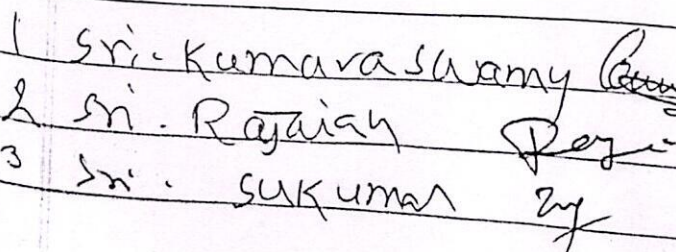 1 Sri. Kumaraswamy
2 Sri. Rajaiah
3 Sri. Sukumar